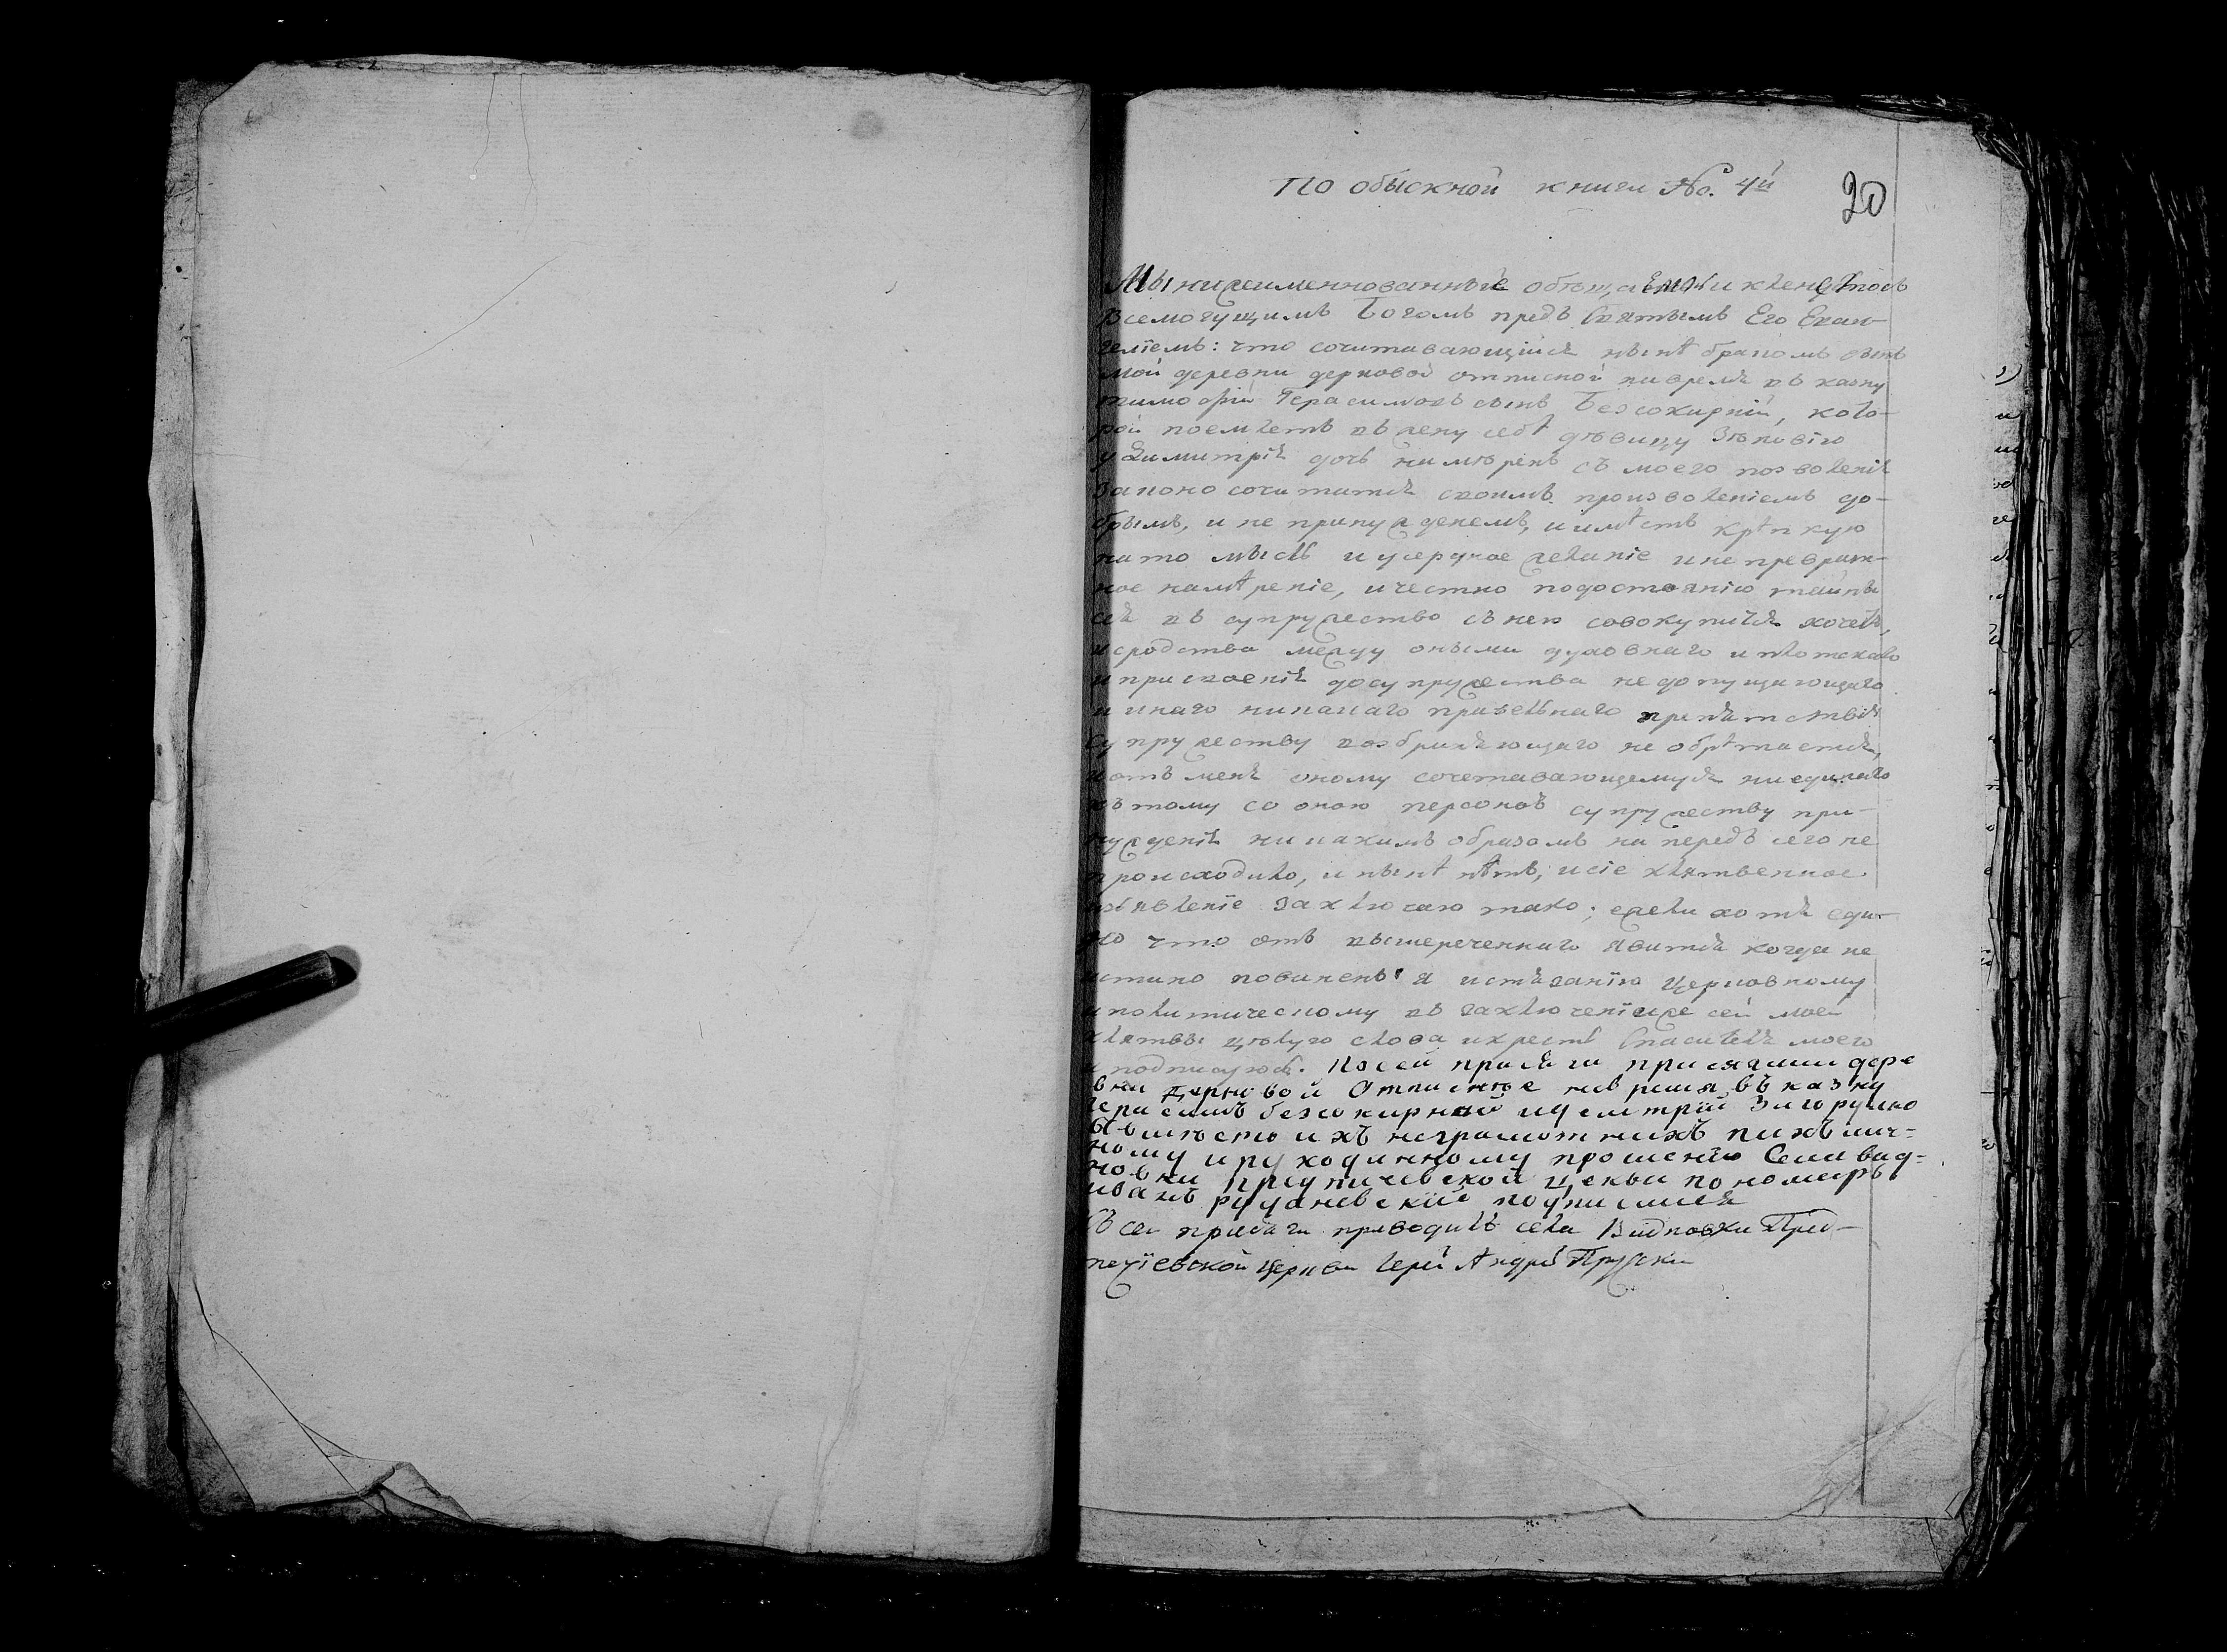 По обыскной книги No. 4й
20
Мы нижеименнованныие обѣщаемся и кленемся
Всемогущимъ Богомъ предъ Святымъ Его Еван-
гелїемъ: что сочитавающїйся нынѣ бракомъ сынъ
мой деревни дерновой отписной на время въ казну
тимофїй Герасимовъ сынъ Безсокирнїй, кото-
рой поемлетъ въ жену себѣ дѣвицу Зѣновїю
Димитрїя дочь намѣренъ съ моего позволенїя
законо сочитатся своимъ произволенїемъ до-
брымъ, и не принужденемъ, и имѣетъ крѣпкую
на то мысль и усердное желанїе и не превратн-
ное намѣренїе, и честно по достоянїю тайны
сея въ супружество съ нею совокупится хочетъ,
и сродства между оными духовнаго и плотскаго
и присвоенїя до супружества не допущающаго
и инаго никакаго правелнаго препятствїя
Супружеству возбраняющаго не обрѣтается,
и отъ меня оному сочетавающемуся ни единаго
къ тому со оною персоною супружеству при-
нужденїя никакимъ образомъ на передъ сего не
происходило, и нынѣ нѣтъ, и сїе клятвенное
изъявленїе заключаю тако; ежели хотя еди-
но что отъ вышереченнаго явится когда не
истино повиненъ я истязанїю Церковному
и политическому въ заключенїи же сей моей
клятвы цѣлую слова и крестъ Спасителя моего
и подписуюсь. По сей присяги присягали дере
вни дерновой Отписное на время въ казну
Герасимъ безсокирной и дмитрїй Загорулко
А вмѣсто ихъ неграмотнихъ по ихъ лич-
ному и рукоданному прошенїю Села вид-
новки церкви пономаръ
иванъ подписался
Къ сей присяги приводилъ села Видновки
Церкви Іерей Андрей